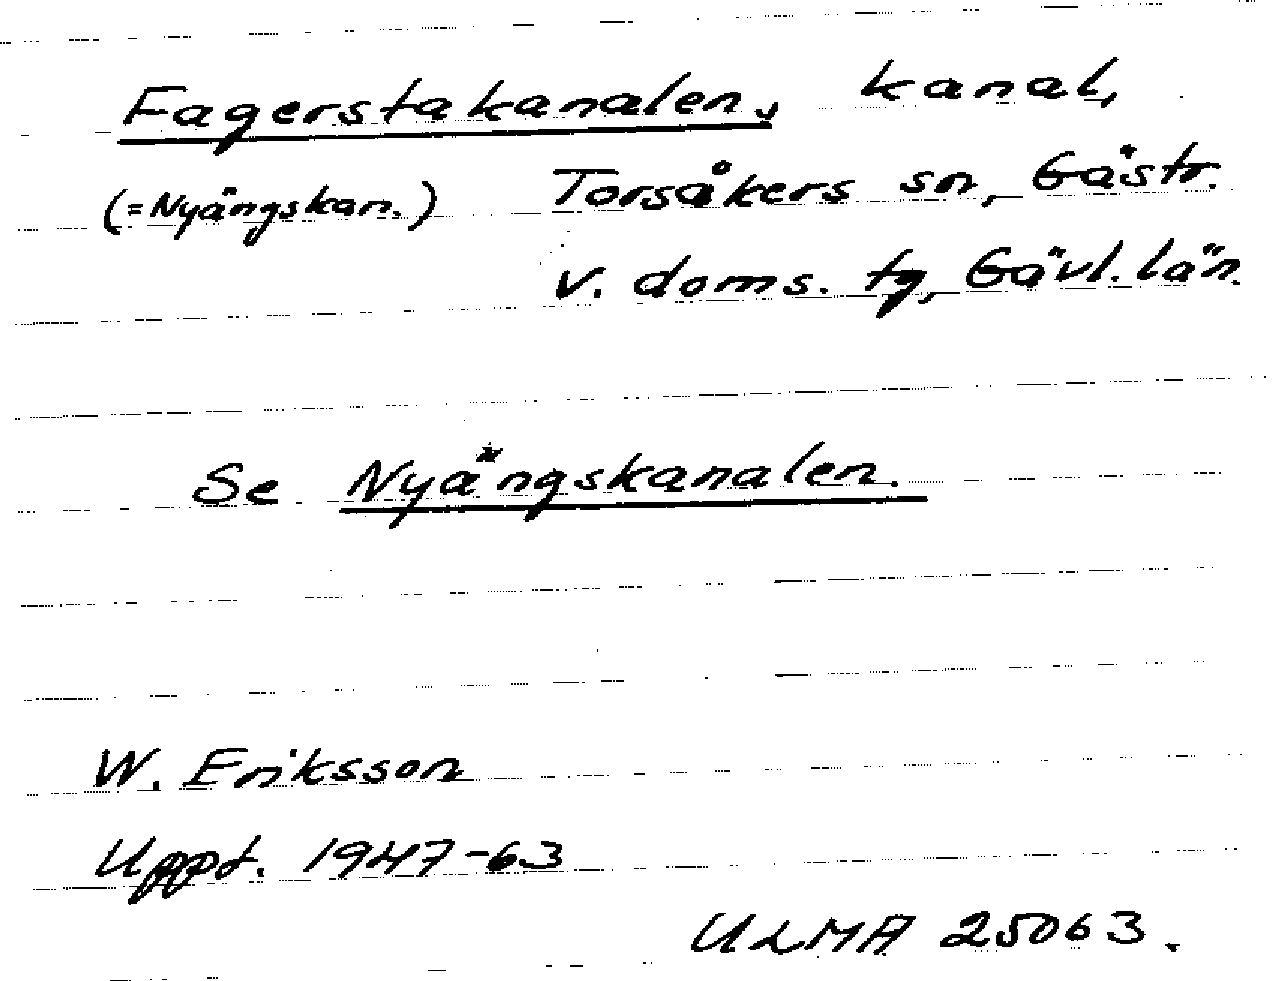 Fagerstakanalen, kanal,
(=Nyängskan.) Torsåkers sn, Gästr.
V. doms. tg, Gävl. län.
Se Nyängskanalen.
W. Eriksson
Uppt. 1947-63
ULMA 25063.